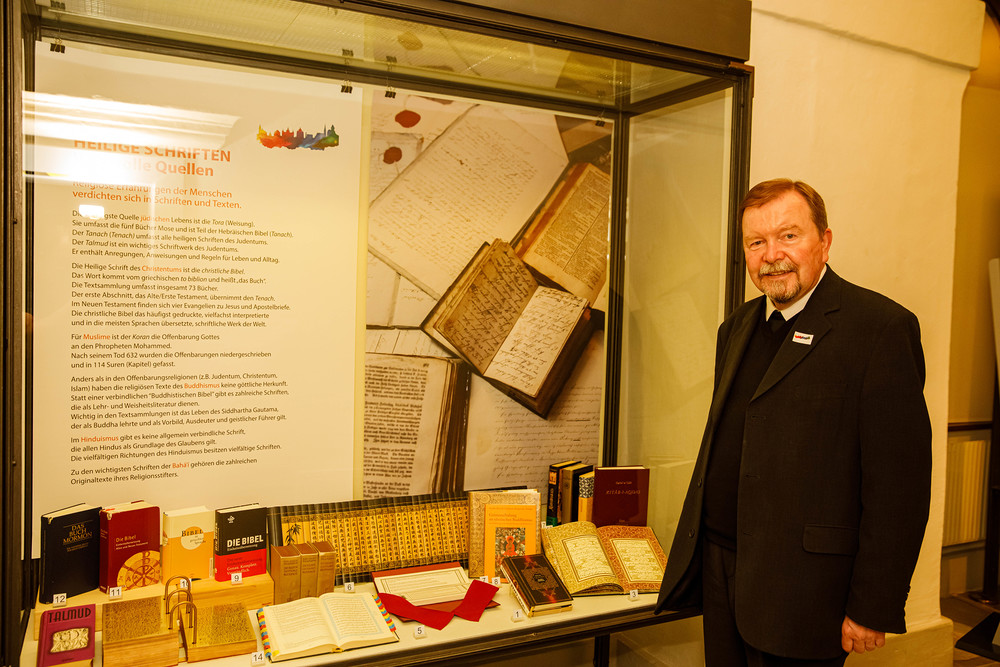 HEILIGE SCHRIFTEN
Quellen
Religiöse Erfahrungen der Menschen
verdichten sich in Schriften und Texten.
Quelle jüdischen Lebens ist die Tora (Weisung).
Sie umfasst die fünf Bücher Mose und ist Teil der Hebräischen Bibel (Tanach).
Der Tanach (Tenach) umfasst alle heiligen Schriften des Judentums.
Der Talmud ist ein wichtiges Schriftwerk des Judentums.
Er enthält Anregungen, Anweisungen und Regeln für Leben und Alltag.
Die Heilige Schrift des Christentums ist die christliche Bibel.
Das Wort kommt vom griechischen to biblion und heißt „das Buch".
Die Textsammlung umfasst insgesamt 73 Bücher.
Der erste Abschnitt, das Alte/Erste Testament, übernimmt den Tenach.
Im Neuen Testament finden sich vier Evangelien zu Jesus und Apostelbriefe.
Die christliche Bibel das häufigst gedruckte, vielfachst interpretierte
und in die meisten Sprachen übersetzte, schriftliche Werk der Welt.
Für Muslime ist der Koran die Offenbarung Gottes
an den Phropheten Mohammed.
Nach seinem Tod 632 wurden die Offenbarungen niedergeschrieben
und in 114 Suren (Kapitel) gefasst.
Anders als in den Offenbarungsreligionen (z.B. Judentum, Christentum,
Islam) haben die religiösen Texte des Buddhismus keine göttliche Herkunft.
Statt einer verbindlichen "Buddhistischen Bibel" gibt es zahlreiche Schriften,
die als Lehr- und Weisheitsliteratur dienen.
Wichtig in den Textsammlungen ist das Leben des Siddhartha Gautama,
der als Buddha lehrte und als Vorbild, Ausdeuter und geistlicher Führer gilt.
Im Hinduismus gibt es keine allgemein verbindliche Schrift,
die allen Hindus als Grundlage des Glaubens gilt.
Die vielfältigen Richtungen des Hinduismus besitzen vielfältige Schriften.
Zu den wichtigsten Schriften der Bahá'í gehören die zahlreichen
Originaltexte ihres Religionsstifters.
DAS
BUCH
MORMON
Die Bibel
Bibel
DIE BIBEL
TALMUD
12
11
9
8
6
5
3
14